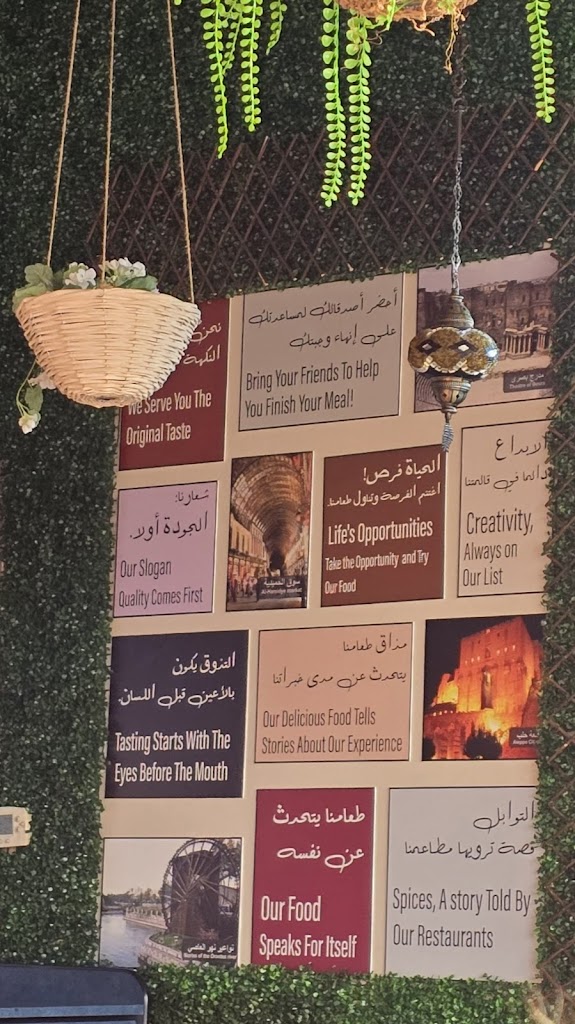 نحن
النكهة
We Serve You The
Original Taste
أحضر أصدقائك لمساعدتك
على إنهاء وجبتك
Bring Your Friends To Help
You Finish Your Meal!
مدرج بصرى
Theatre of Bosra
شعارنا:
الجودة أولا.
Our Slogan
Quality Comes First
سوق الحميدية
الحياة فرص!
اغتنم الفرصة وتناول طعامنا.
Life's Opportunities
Take the Opportunity and Try
Our Food
الابداع
دائما في قائمتنا
Creativity,
Always on
Our List
التذوق يكون
بالأعين قبل اللسان.
Tasting Starts With The
Eyes Before The Mouth
مذاق طعامنا
يتحدث عن مدى خبراتنا
Our Delicious Food Tells
Stories About Our Experience
حلب
Aleppo
نواعير نهر العاصي
Norias of the Orontes river
طعامنا يتحدث
عن نفسه
Our Food
Speaks For Itself
التوابل
قصة ترويها مطاعمنا
Spices, A story Told By
Our Restaurants